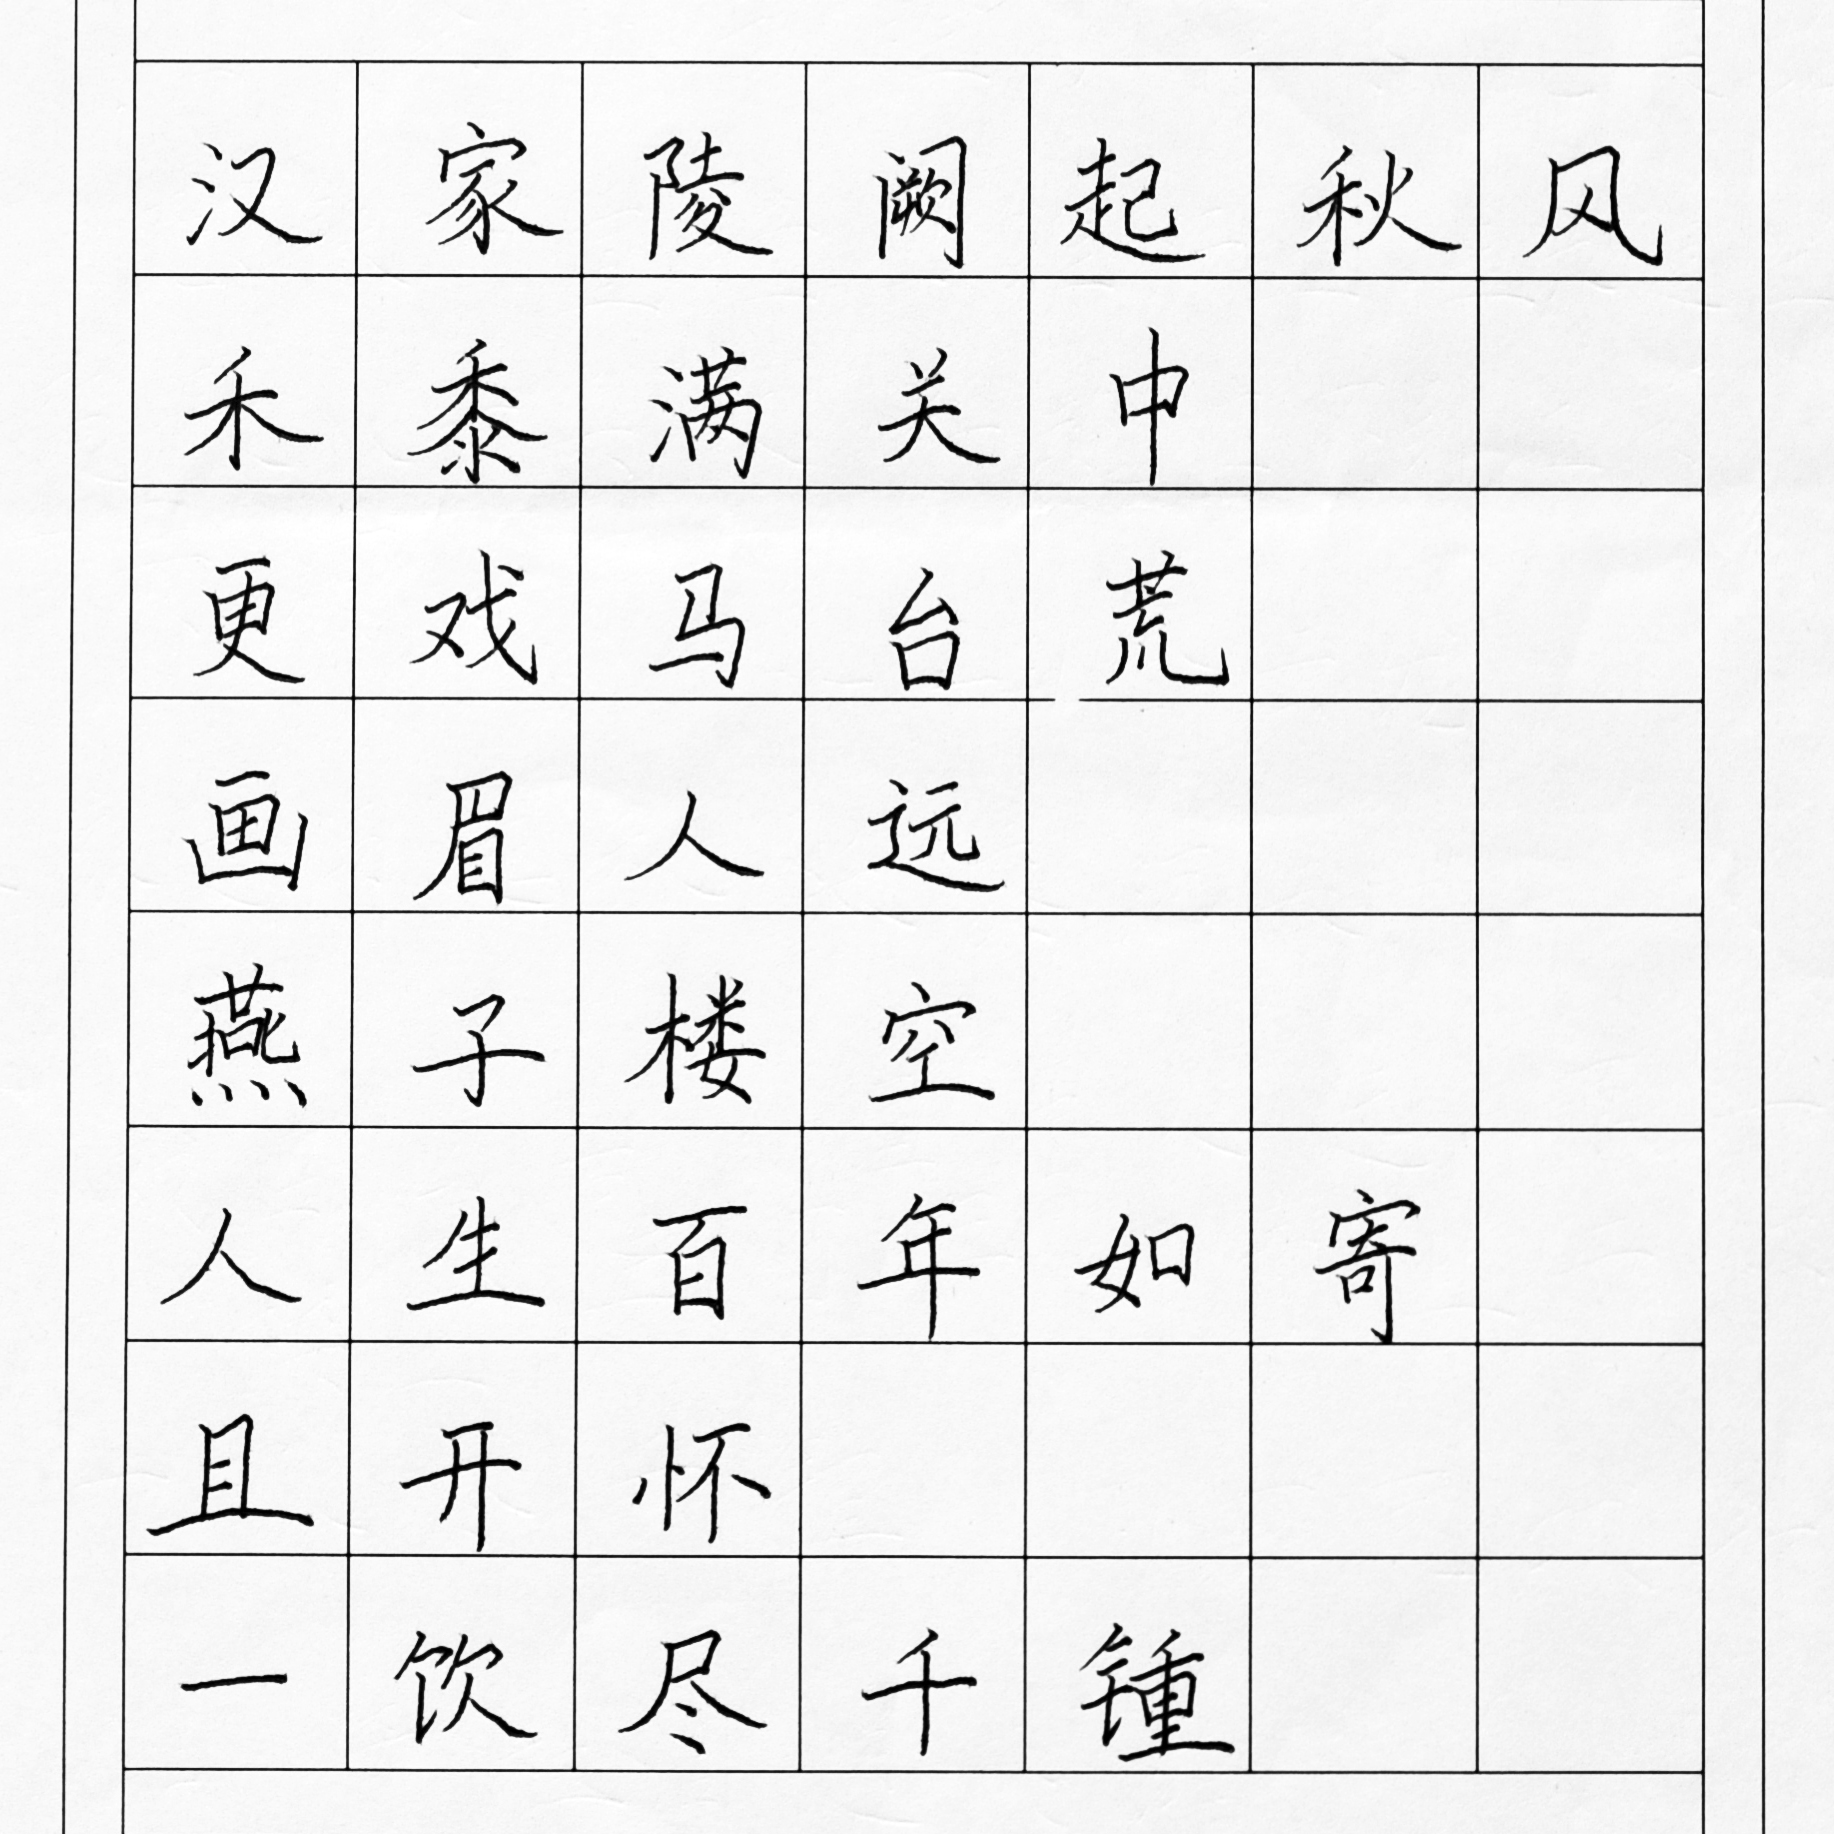 汉家陵阙起秋风
禾黍满关中
更戏马台荒
画眉人远
燕子楼空
人生百年如寄
且开怀
一饮尽千锺